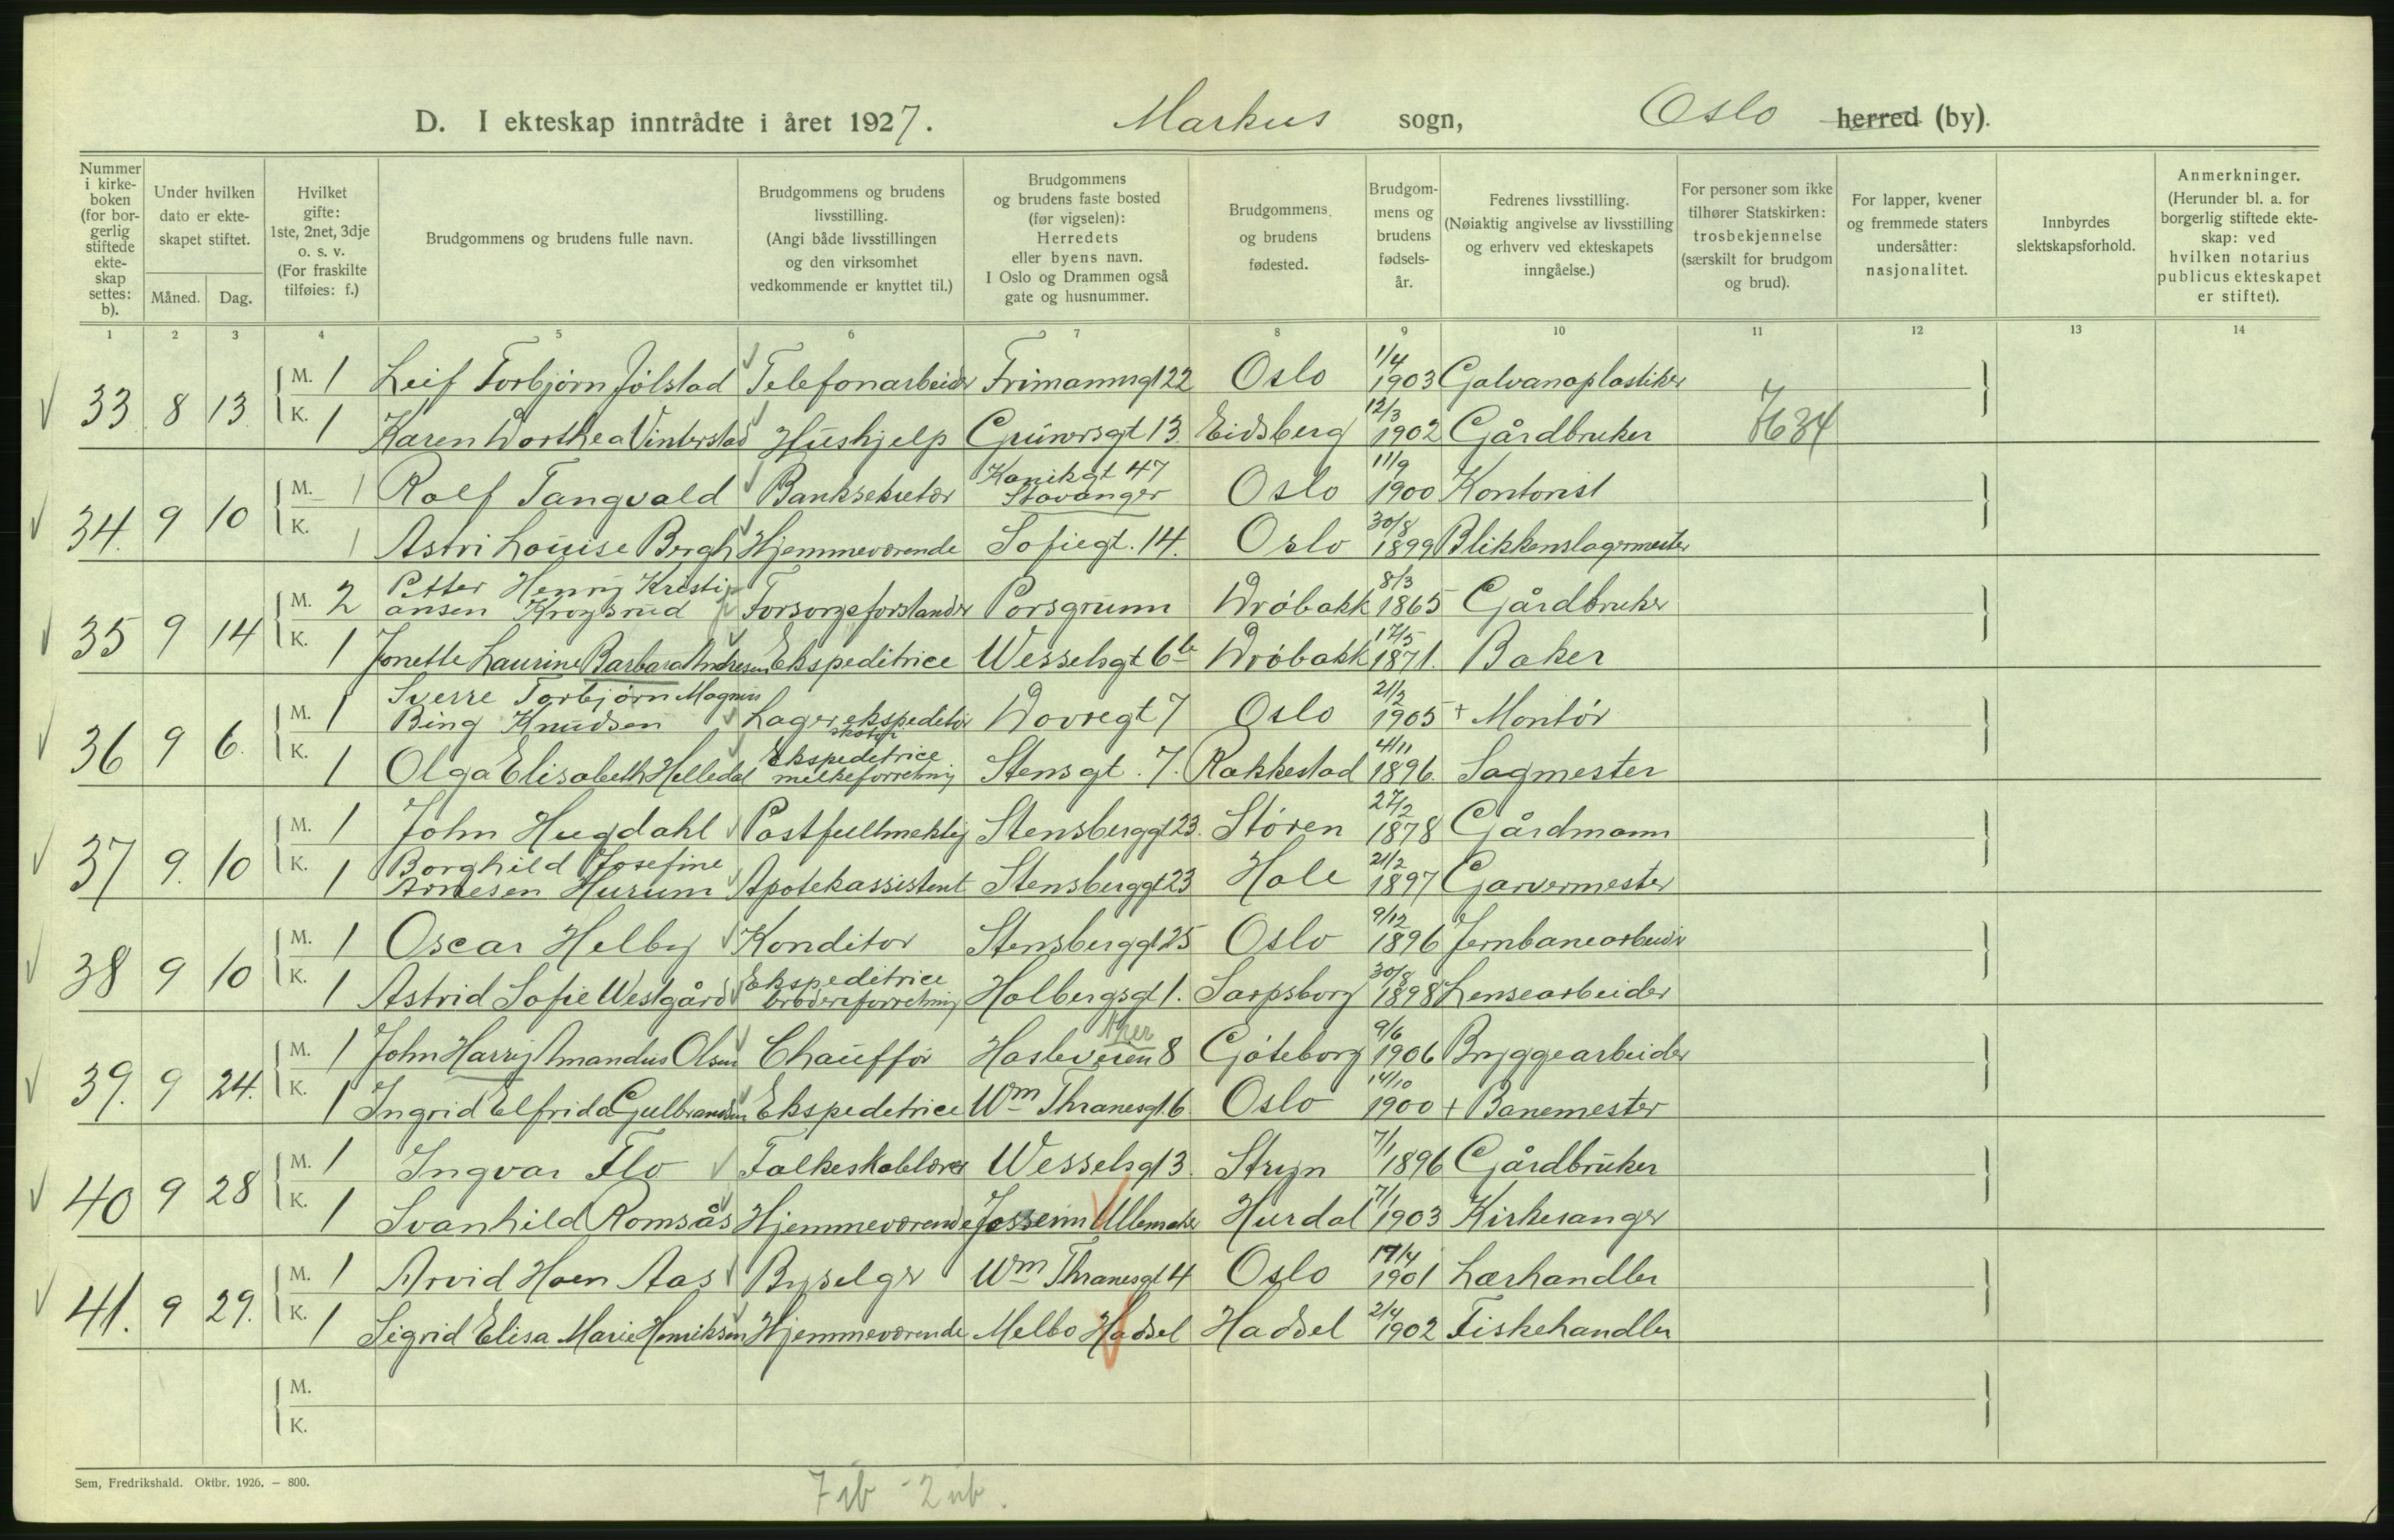 D. I ekteskap inntrådte i året 1927. Markus sogn, Oslo herred (by).
Nummer i kirke-boken (for bor-gerlig stiftede ekte-skap settes: b).
Under hvilken dato er ekte-skapet stiftet.
Måned. Dag.
Hvilket gifte: 1ste, 2net, 3dje o. s. v. (For fraskilte tilføies: f.)
Brudgommens og brudens fulle navn.
Brudgommens og brudens livsstilling. (Angi både livsstillingen og den virksomhet vedkommende er knyttet til.)
Brudgommens og brudens faste bosted (før vigselen): Herredets eller byens navn. I Oslo og Drammen også gate og husnummer.
Brudgommens og brudens fødested.
Brudgom-mens og brudens fødsels-år.
Fedrenes livsstilling. (Nøiaktig angivelse av livsstilling og erhverv ved ekteskapets inngåelse.)
For personer som ikke tilhører Statskirken: trosbekjennelse (særskilt for brudgom og brud).
For lapper, kvener og fremmede staters undersåtter: nasjonalitet.
Innbyrdes slektskapsforhold.
Anmerkninger. (Herunder bl. a. for borgerlig stiftede ekte-skap: ved hvilken notarius publicus ekteskapet er stiftet).
1 2 3 4 5 6 7 8 9 10 11 12 13 14
33 8 13 M. 1 Leif Torbjørn Jölstad Telefonarbeider Frimannsgt 22 Oslo 1/4 1903 Galvanoplastiker
K. 1 Karen Dorthea Vinterstad Hushjelp Grünersgt 13. Eidsberg 12/3 1902 Gårdbruker 7634
34. 9 10 M. 1 Rolf Tangvald Banksekretær Kanikgt 47 Stavanger Oslo 11/9 1900 Kontorist
K. 1 Astri Louise Bergh Hjemmeværende Sofiegt. 14. Oslo 30/8 1899 Blikkenslagermester
35 9 14 M. 2 Petter Henry Kristiansen Krogsrud Forsorgsforstander Porsgrunn Dröbakk 8/3 1865 Gårdbruker
K. 1 Jonette Laurine Barbara Andresen Ekspeditrice Wesselsgt 6b Dröbakk 17/5 1871. Baker
36 9 6. M. 1 Sverre Torbjørn Magnus Bing Knudsen Lagerekspeditør Dovregt 7 Oslo 21/2 1905 + Montör
K. 1 Olga Elisabeth Helledal Ekspeditrice melkeforretning Stensgt. 7. Rakkestad 4/11 1896. Sagmester
37 9. 10 M. 1 John Hugdahl Postfullmektig Stensberggt 23. Stören 27/2 1878 Gårdmann
K. 1 Borghild Josefine Arnesen Hurum Apotekassistent Stensberggt 23 Hole 21/2 1897 Garvermester
38 9 10 M. 1 Oscar Helby Konditor Stensberggt 25 Oslo 9/12 1896 Jernbanearbeider
K. 1 Astrid Sofie Westgård Ekspeditrice broderiforretning Holbergsgt 1. Sarpsborg 30/8 1898 Lensearbeider
39. 9 24. M. 1 John Harry Amandus Olsen Chauffør Hasleveien 8 Aker Göteborg 9/6 1906 Bryggearbeider
K. 1 Ingrid Elfrida Gulbrandsen Ekspeditrice Wm Thranesgt. 6 Oslo 14/10 1900 + Banemester
40 9 28 M. 1 Ingvar Flo Folkeskolelærer Wesselsgt 3. Stryn 7/1 1896 Gårdbruker
K. 1 Svanhild Romsås Hjemmeværende Jessheim Ullensaker Hurdal 7/1 1903 Kirkesanger
41. 9 29. M. 1 Arvid Hoen Aas Byselger Wm Thranesgt 4 Oslo 19/4 1901 Lærhandler
K. 1 Sigrid Elisa Marie Henriksen Hjemmeværende Melbo Hadsel Hadsel 2/4 1902 Fiskehandler
M.
K.
Sem, Fredrikshald. Oktbr. 1926. – 800.
7 ib - 2 ub.